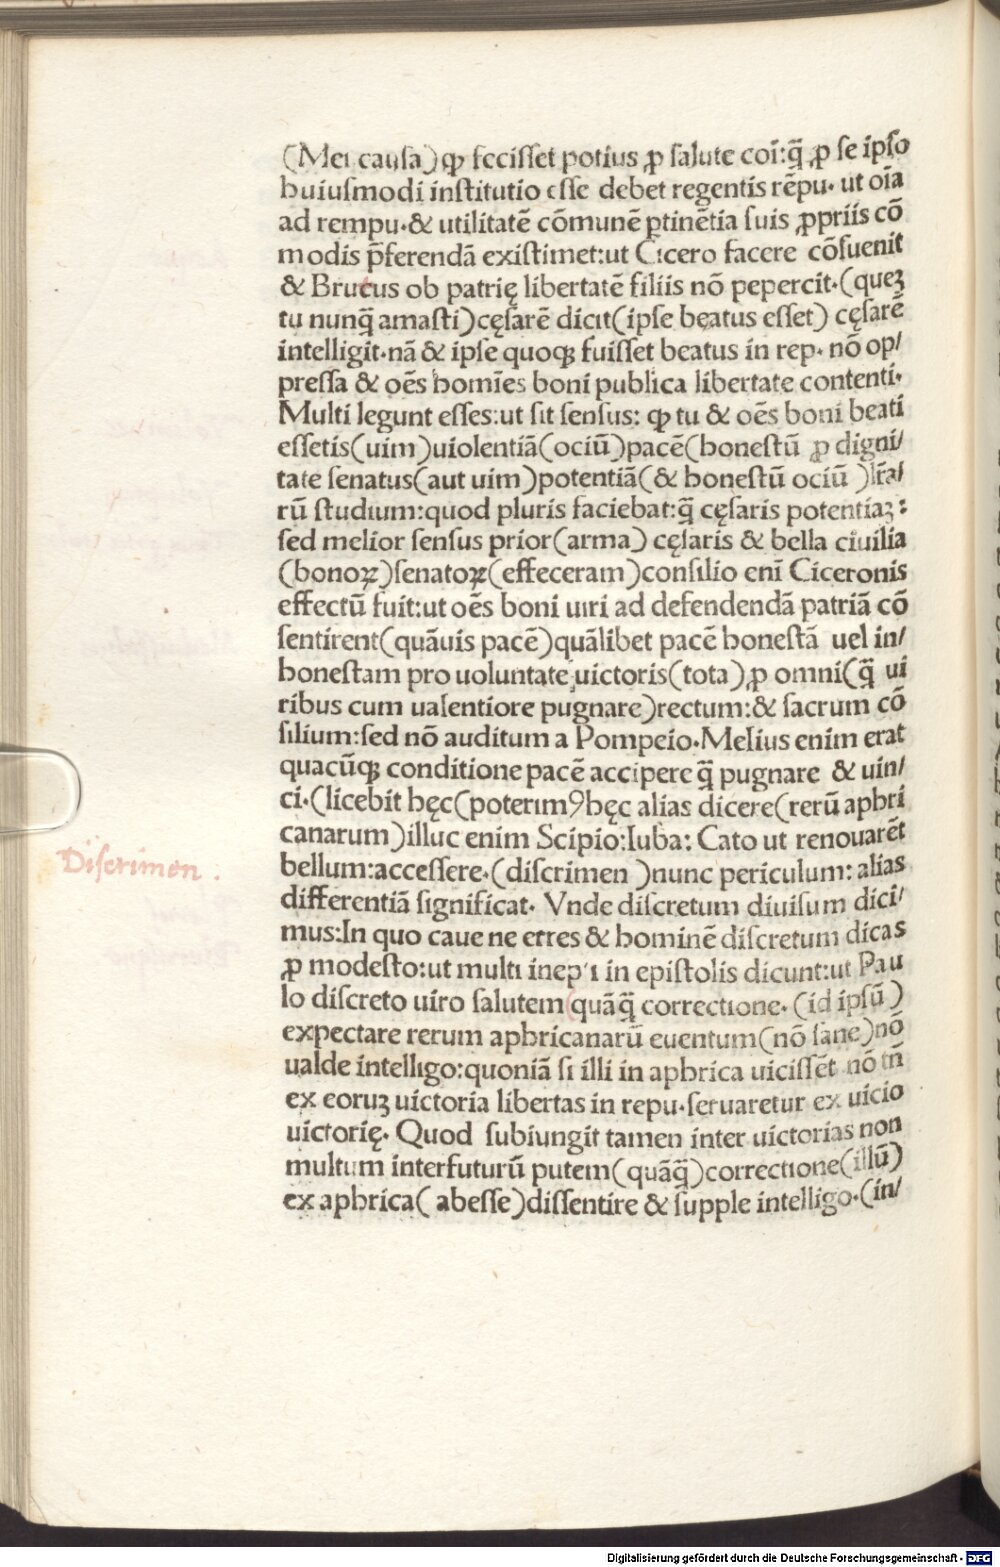 (Mei causa) ꝙ fecisset potius ꝓ salute coī:q̄ꝫ ꝓ se ipso
huiusmodi institutio esse debet regentis rēpu. ut oīa
ad rempu.& utilitatē cōmunē ꝑtinētia suis ꝓpriis cō
modis p̄ferendā existimet:ut Cicero facere cōsueuit
& Brutus ob patrię libertatē filiis nō pepercit.(queꝫ
tu nunq̄ amasti)cęsarē dicit(ipse beatus esset) cęsarē
intelligit.nā & ipse quoqꝫ fuisset beatus in rep. nō op/
pressa & oēs homīes boni publica libertate contenti.
Multi legunt esses:ut sit sensus: ꝙ tu & oēs boni beati
essetis(uim)uiolentiā(ociū)pacē(honestū ꝓ digni/
tate senatus(aut uim)potentiā(& honestū ociū )lr̄a/
rū studium:quod pluris faciebat:q̄ cęsaris potentiaꝫ:
sed melior sensus prior(arma) cęsaris & bella ciuilia
(bonoꝝ)senatoꝝ(effeceram)consilio enī Ciceronis
effectū fuit:ut oēs boni uiri ad defendendā patriā cō
sentirent(quāuis pacē)quālibet pacē honestā uel in/
honestam pro uoluntate uictoris(tota)ꝓ omni(q̄ ui
ribus cum ualentiore pugnare)rectum:& sacrum cō
silium:sed nō auditum a Pompeio.Melius enim erat
quacūqꝫ conditione pacē accipere q̄ pugnare & uin/
ci.(licebit hęc(poterimꝰhęc alias dicere(rerū aphri
canarum)illuc enim Scipio:Iuba: Cato ut renouarēt
bellum:accessere.(discrimen )nunc periculum: alias
differentiā significat. Vnde discretum diuisum dici/
mus:In quo caue ne erres & hominē discretum dicas
ꝓ modesto:ut multi inepti in epistolis dicunt:ut Pau
lo discreto uiro salutem(quāq̄ correctione. (id ipsū )
expectare rerum aphricanarū euentum(nō sane)nō
ualde intelligo:quoniā si illi in aphrica uicissēt nō tn̄
ex eoruꝫ uictoria libertas in repu.seruaretur ex uicio
uictorię. Quod subiungit tamen inter uictorias non
multum interfuturū putem(quāq̄)correctione(illū)
ex aphrica( abesse)dissentire & supple intelligo.(in/
Discrimen .
Digitalisierung gefördert durch die Deutsche Forschungsgemeinschaft - DFG